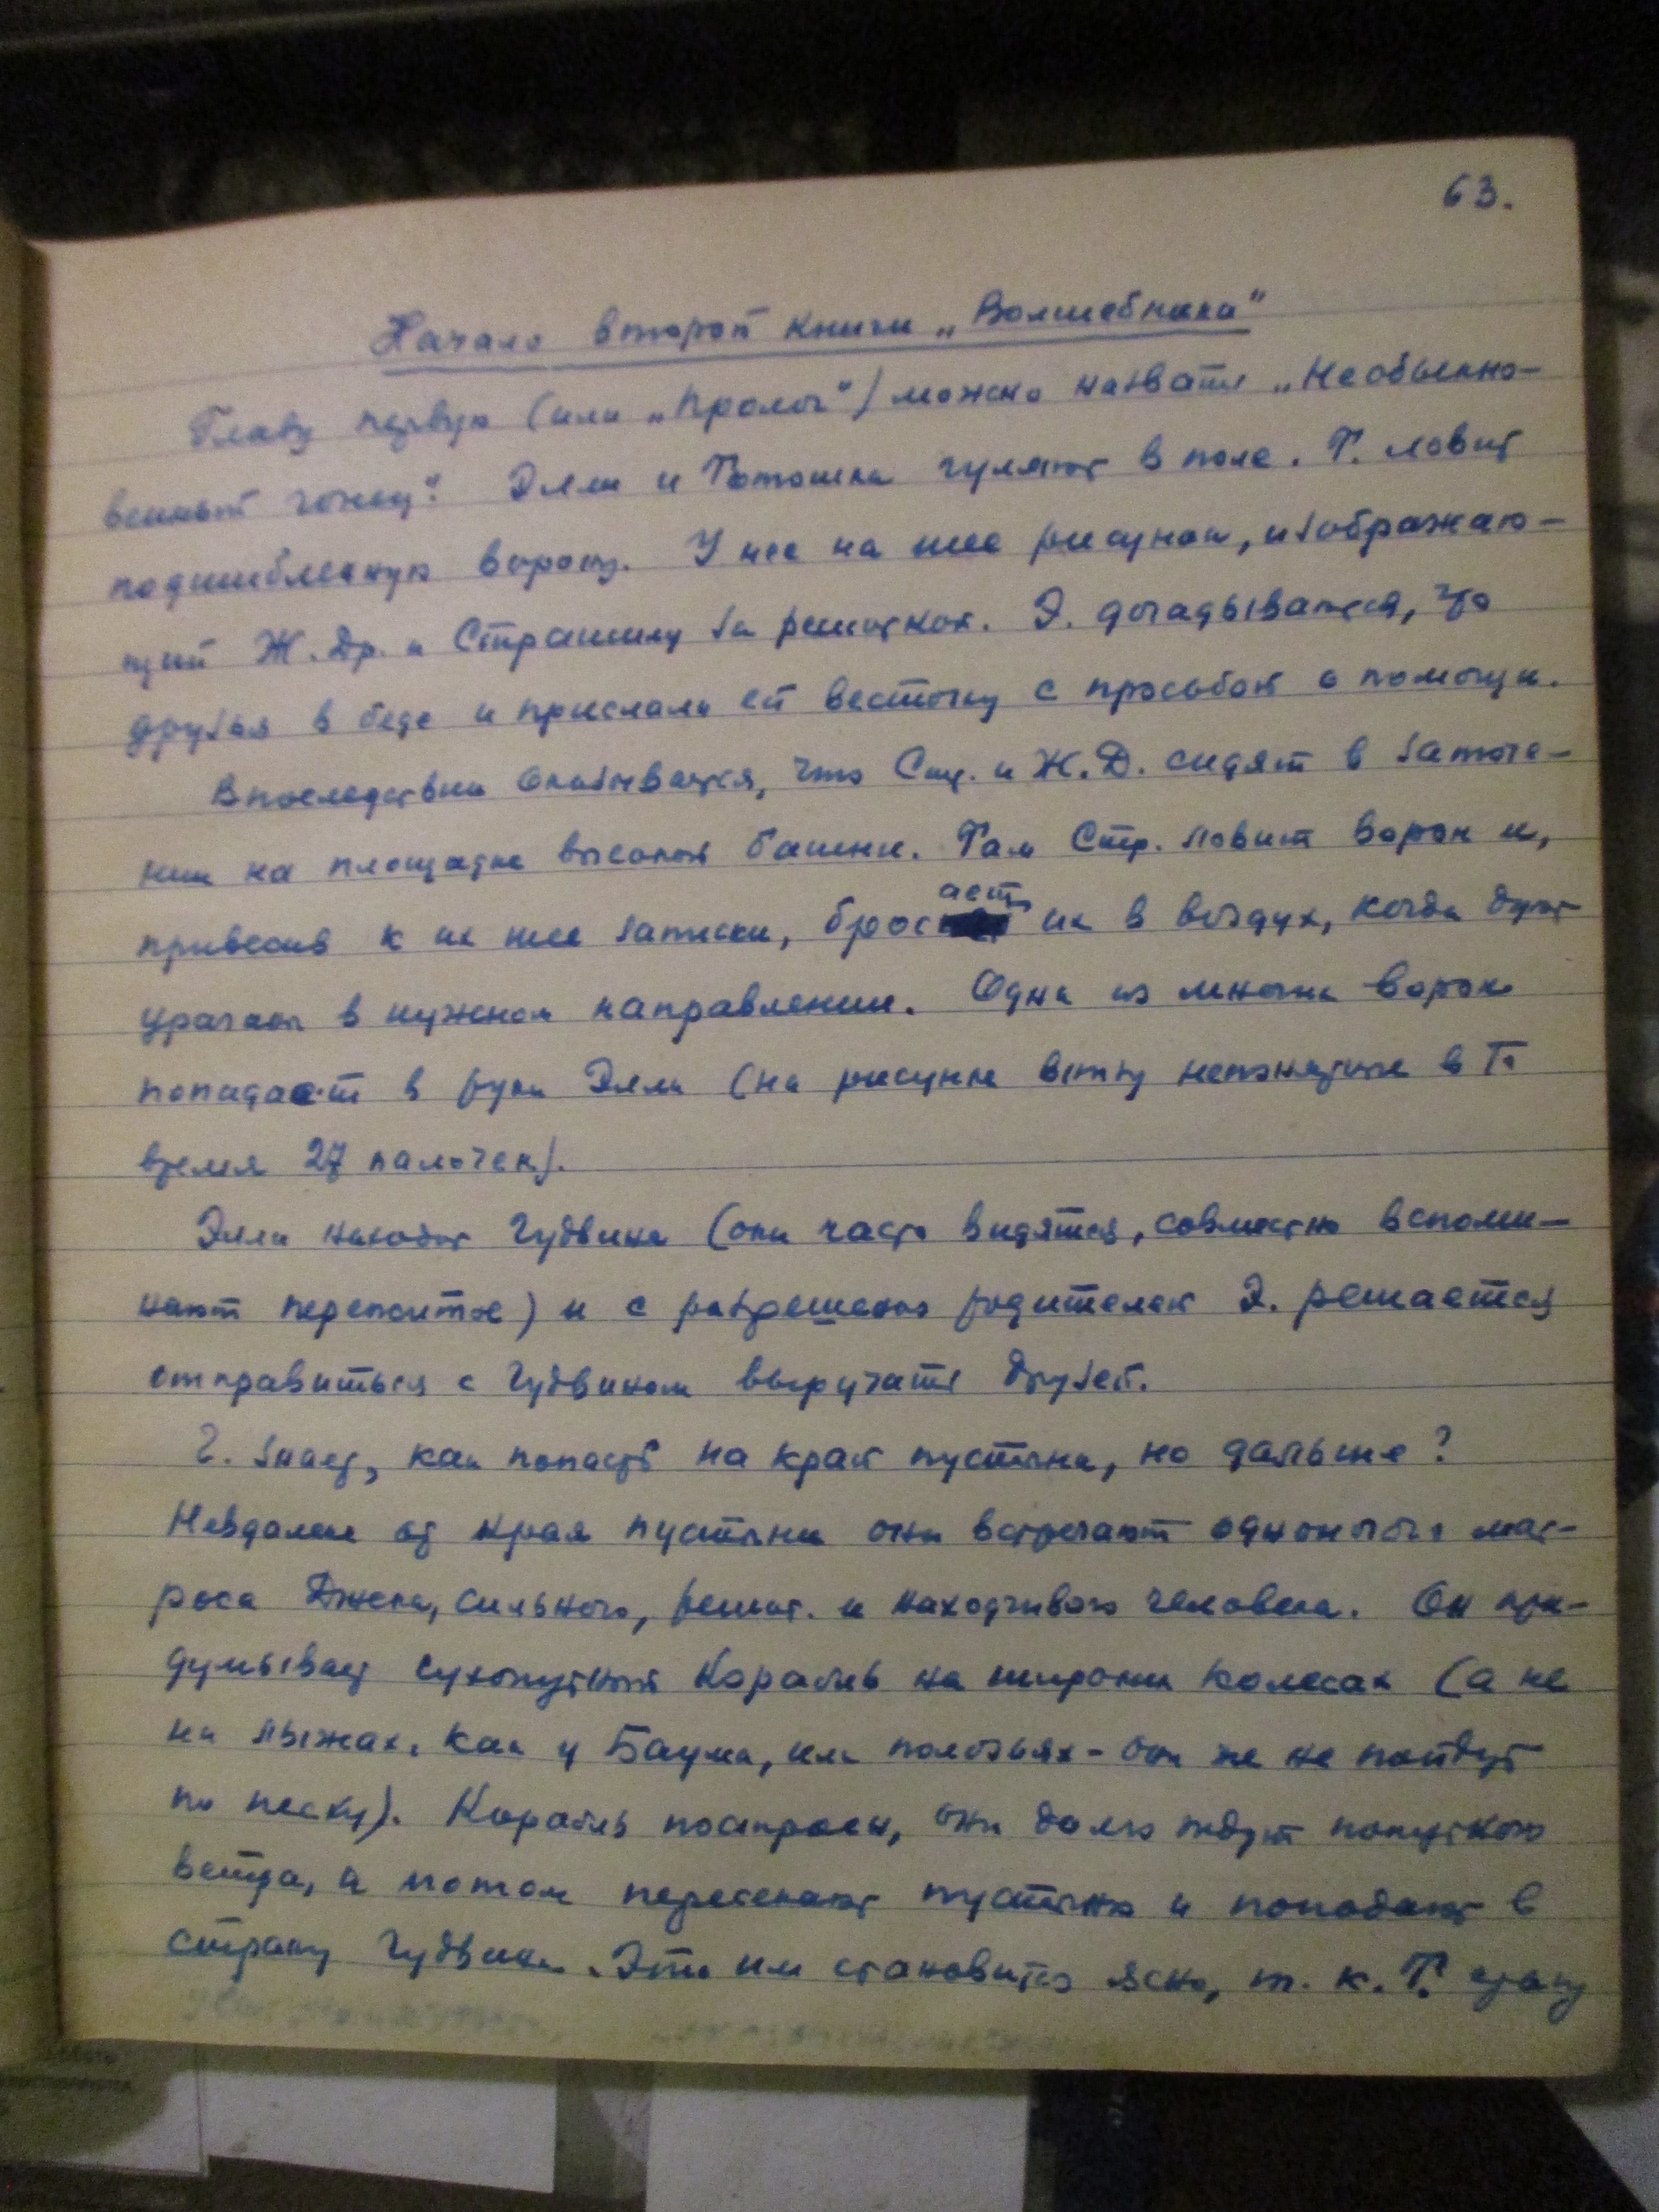 63.
Начало второй книги „Волшебника"
Главу первую (или „Пролог") можно назвать „Необыкно-
венный гонец". Элли и Тотошка гуляют в поле. Т. ловит
подшибленную ворону. У нее на шее рисунок, изображаю-
щий Ж. Др. и Страшилу за решеткой. Э. догадывается, что
друзья в беде и прислали ей весточку с просьбой о помощи.
Впоследствии оказывается, что Стр. и Ж.Д. сидят в заточе-
нии на площадке высокой башни. Там Стр. ловит ворон и,
привесив к их шее записки, бросает их в воздух, когда дует
ураган в нужном направлении. Одна из многих ворон
попадает в руки Элли (на рисунке внизу непонятные в
время 27 палочек).
Элли находит Гудвина (они часто видятся, совместно вспоми-
нают пережитое) и с разрешения родителей Э. решается
отправиться с Гудвином выручать друзей.
Г. знает, как попасть на край пустыни, но дальше?
Невдалеке от края пустыни они встречают одноногого мат-
роса Джека, сильного, решит. и находчивого человека. Он при-
думывает сухопутный корабль на широких колесах (а не
на лыжах, как у Баума, или полозьях - они же не пойдут
по песку). Корабль построен, они долго ждут попутного
ветра, а потом пересекают пустыню и попадают в
страну Гудвина. Это им становится ясно, т. к. Т. сразу